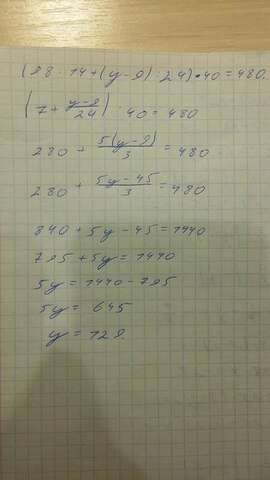 (98 : 14 + (y - 9) : 24) · 40 = 480.
(7 + (y-9)/24) · 40 = 480
280 + 5(y-9)/3 = 480
280 + (5y-45)/3 = 480
840 + 5y - 45 = 1440
795 + 5y = 1440
5y = 1440 - 795
5y = 645
y = 129.